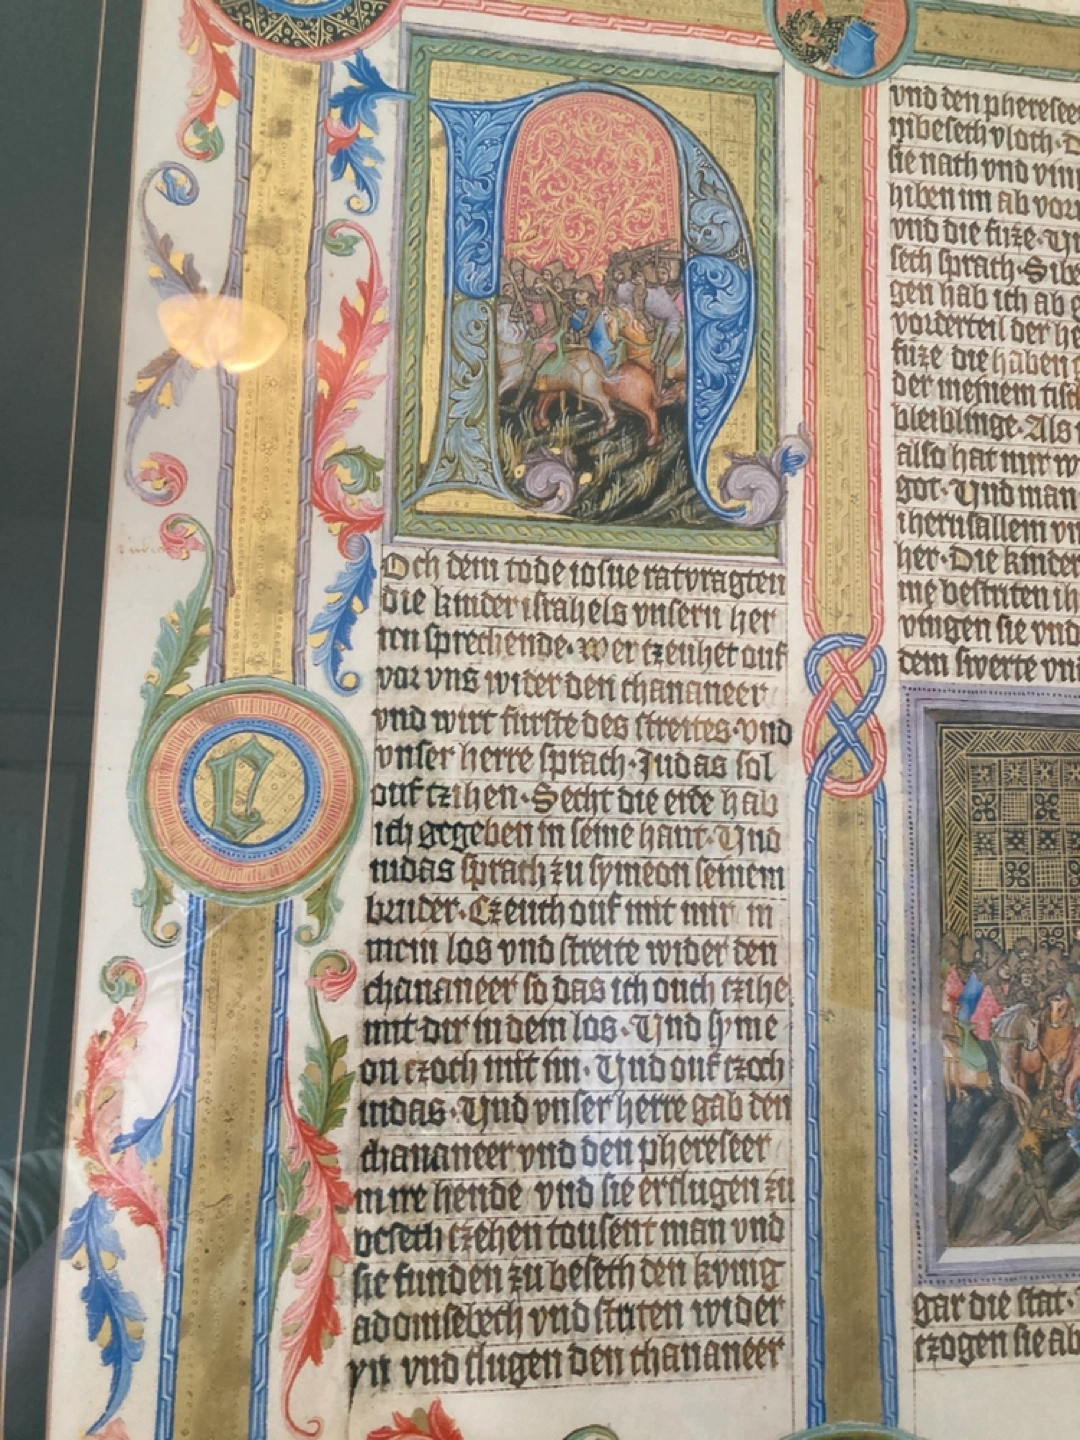 N
Och dem tode iosue ratvragten
die kinder israhels vnsern her
ren sprechende. wer czeuhet ouf
vor vns wider den chananeer
vnd wirt furste des streites. vnd
vnser herre sprach. Judas sol
ouf czihen. Secht die erde hab
ich gegeben in seine hant. Vnd
iudas sprach zu symeon seinem
bruder. Czeuch ouf mit mir in
mein los vnd streite wider den
chananeer so das ich ouch czihe
mit dir in dein los. Vnd syme
on czoch mit im. Vnd ouf czoch
iudas. Vnd vnser herre gab den
chananeer vnd den phereseer
in ire hende vnd sie erslugen zu
beseth czehen tousent man vnd
sie funden zu beseth den kvnig
adonisebech vnd striten wider
yn vnd slugen den chananeer
vnd den pherese
vloch. D
sie nach vnd vin
hiben im ab vor
vnd die fuze. Vn
sech sprach. Sibe
gen hab ich ab g
vorderteil der he
fuze die haben
der meinem tisch
bleiblinge. Als
also hat mir w
got. Vnd man
iherusallem vn
her. Die kinder
me bestriten ih
vingen sie vnd
dem swerte vn
gar die stat.
czogen sie ab
E